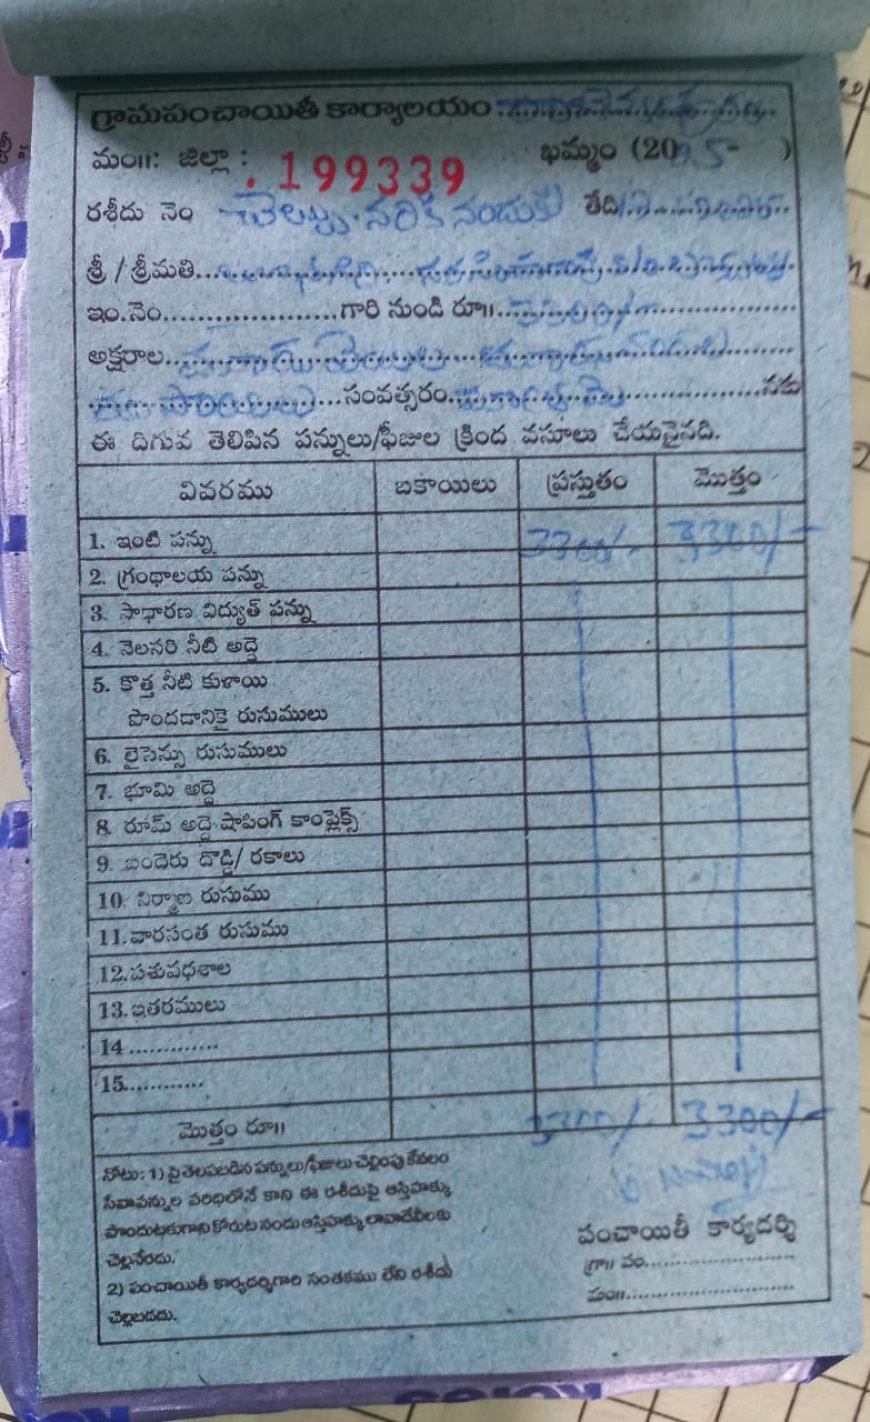 గ్రామపంచాయితీ కార్యాలయం
మం॥: జిల్లా : ఖమ్మం (2025- )
199339
రశీదు నెం చెట్లు నరికి నందుకు తేది
శ్రీ / శ్రీమతి
ఇం.నెం. గారి నుండి రూ॥ 3300/-
అక్షరాల మూడు వేలల మూడు వందల
రూపాయిలు సంవత్సరం నకు
ఈ దిగువ తెలిపిన పన్నులు/ఫీజుల క్రింద వసూలు చేయనైనది.
వివరము బకాయిలు ప్రస్తుతం మొత్తం
1. ఇంటి పన్ను 3300/- 3300/-
2. గ్రంథాలయ పన్ను
3. సాధారణ విద్యుత్ పన్ను
4. నెలసరి నీటి అద్దె
5. కొత్త నీటి కుళాయి
పొందడానికై రుసుములు
6. లైసెన్సు రుసుములు
7. భూమి అద్దె
8. రూమ్ అద్దె షాపింగ్ కాంప్లెక్స్
9. బందెరు దొడ్డి/ రకాలు
10. నిర్మాణ రుసుము
11. వారసంత రుసుము
12. పశువధశాల
13. ఇతరములు
14 .............
15............
మొత్తం రూ॥ 3300/- 3300/-
నోటు : 1) పై తెలపబడిన పన్నులు/ఫీజులు చెల్లింపు కేవలం
సేవాపన్నుల పరిధిలోనే కాని ఈ రశీదుపై ఆస్తిహక్కు
పొందుటకుగాని కోరుట నందు ఆస్తిహక్కు లావాదేవీలకు
చెల్లనేరదు.
2) పంచాయితీ కార్యదర్శిగారి సంతకము లేని రశీదు
చెల్లుబడదు.
పంచాయితీ కార్యదర్శి
గ్రా॥ పం.
మం॥